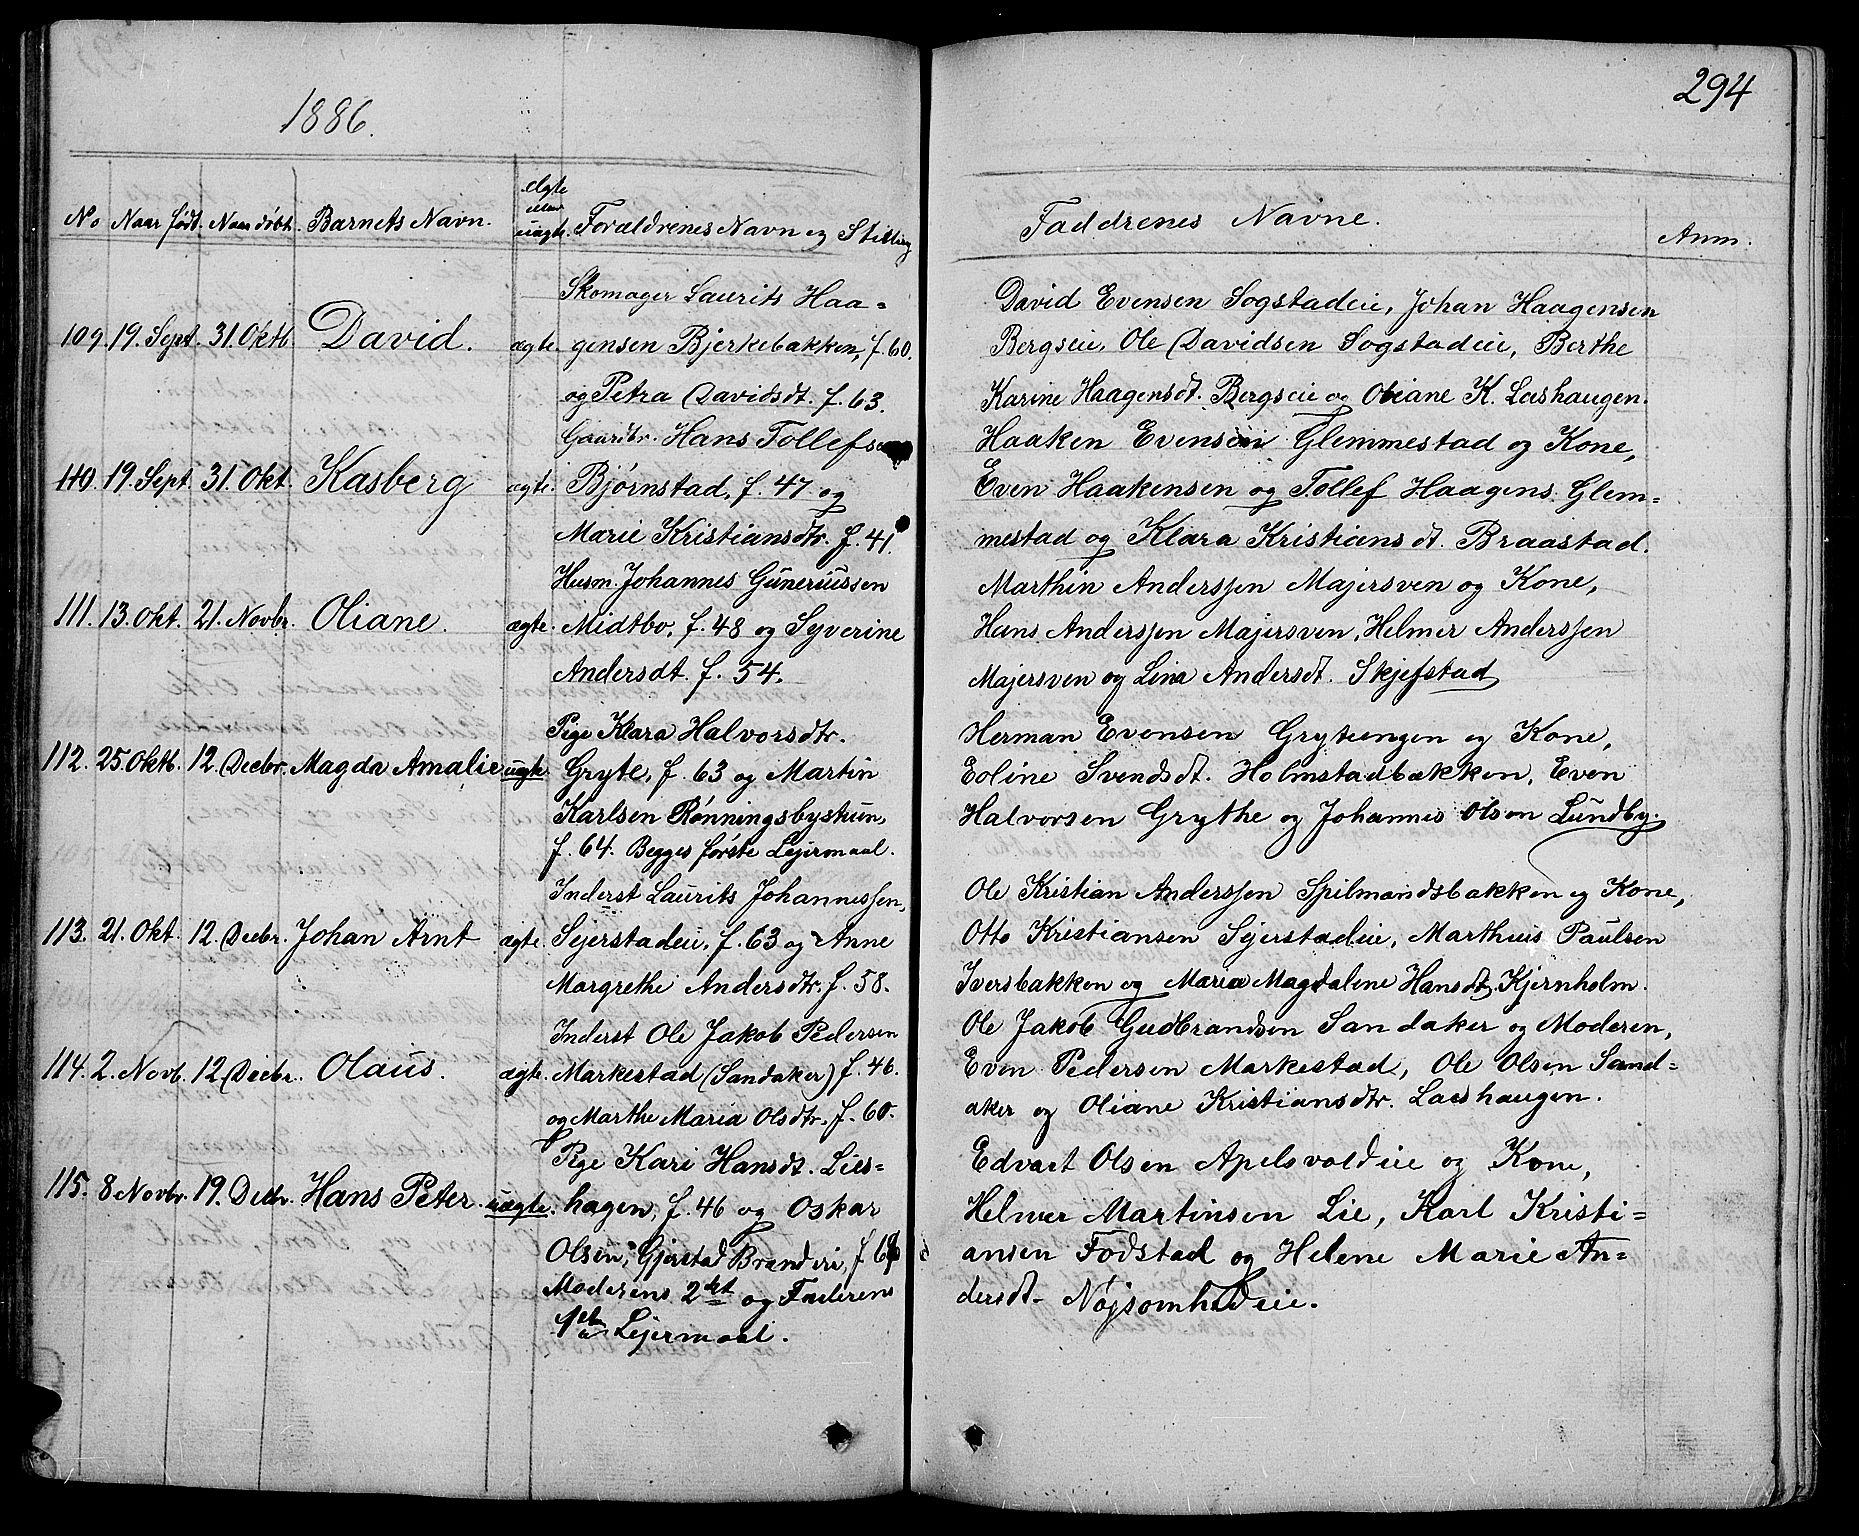 294
1886.
No Naar født. Naar døbt. Barnets Navn. Ægte eller uægte. Forældrenes Navn og Stilling
Faddrenes Navne. Anm.
Skomager Laurits Haa-
109. 19. Sept. 31. Oktb. David. ægte. gensen Bjerkebakken, f. 60.
og Petra Davidsdt. f. 63.
Gaardbr. Hans Tollefsen
110. 19. Sept. 31. Okt. Kasberg ægte. Bjørnstad, f. 47 og
Marie Kristiansdtr. f. 41.
Husm. Johannes Guneriussen
111. 13. Okt. 21. Novbr. Oliane. ægte. Midtbo, f. 48 og Syverine
Andersdt. f. 54.
Pige Klara Halvorsdtr.
112. 25. Oktb. 12. Decbr. Magda Amalie uægte. Gryte, f. 63 og Martin
Karlsen Rønningsbystuen,
f. 64. Begges første Lejermaal.
Inderst Laurits Johannessen,
113. 21. Okt. 12. Decbr. Johan Arnt ægte. Sejerstadeie, f. 63 og Anne
Margrethe Andersdtr. f. 58.
Inderst Ole Jakob Pedersen
114. 2. Novb. 12. Decbr. Olaus. ægte. Markestad (Sandaker) f. 46.
og Marthe Maria Olsdtr. f. 60.
Pige Kari Hansdt. Lies-
115. 8 Novbr. 19. Decbr. Hans Peter. uægte. hagen, f. 46 og Oskar
Olsen, Gjerstad Branderi, f. 66
Moderens 2det og Faderens
1ste Lejermaal.
David Evensen Sogstadeie, Johan Haagensen
Bergseie, Ole Davidsen Sogstadeie, Berthe
Karine Haagensdt. Bergseie og Oliane K. Lashaugen.
Haaken Evensen Glemmestad og Kone,
Even Haakensen og Tollef Haagens. Glem-
mestad og Klara Kristiansdt. Braastad.
Marthin Anderssen Majersven og Kone,
Hans Anderssen Majersven, Helmer Anderssen
Majersven og Lina Andersdt. Skjefstad
Herman Evensen Gryteengen og Kone,
Eoline Svendsdt. Holmstadbakken, Even
Halvorsen Grythe og Johannes Olsen Lundby.
Ole Kristian Anderssen Spilmandsbakken og Kone,
Otto Kristiansen Sejerstadeie, Marthius Paulsen
Iversbakken og Maria Magdalene Hansdt. Kjernholm.
Ole Jakob Gudbrandsen Sandaker og Moderen,
Even Pedersen Markestad, Ole Olsen Sand-
aker og Oliane Kristiansdtr. Laeshaugen.
Edvart Olsen Apelsvoldeie og Kone,
Helmer Martinsen Lie, Karl Kristi-
ansen Fodstad og Helene Marie An-
dersdt. Nøjsomhedeie.